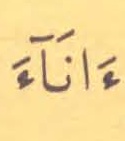 ءَانَآءَ